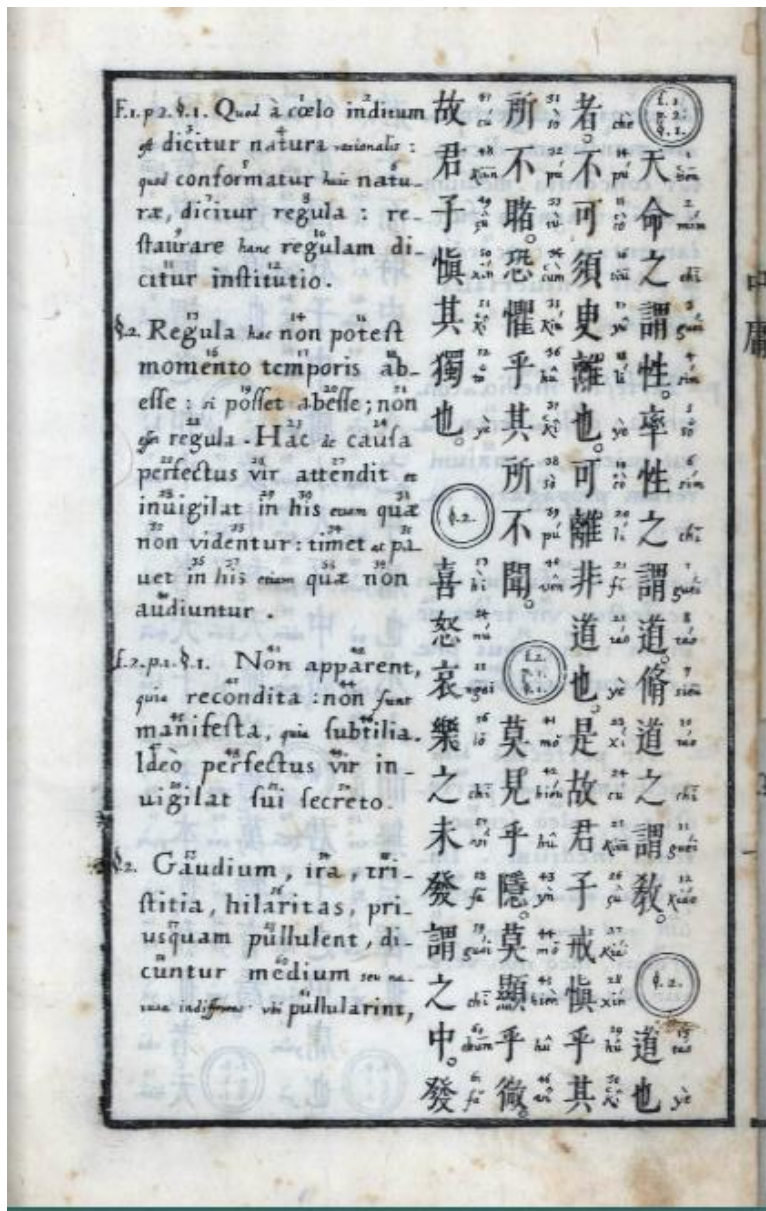 F.1.p.2.§.1. Quod à cœlo inditum
est dicitur natura rationalis :
quod conformatur huic natu-
ræ, dicitur regula : re-
staurare hanc regulam di-
citur institutio.
§.2. Regula hæc non potest
momento temporis ab-
esse : si posset abesse ; non
regula . Hac de causa
perfectus vir attendit et
inuigilat in his etiam quæ
non videntur : timet ac pa-
uet in his etiam quæ non
audiuntur .
f.2.p.1.§.1. Non apparent,
quia recondita : non sunt
manifesta, quia subtilia.
Ideò perfectus vir in-
uigilat sui secreto.
§.2. Gaudium, ira, tri-
stitia, hilaritas, pri-
usquam pullulent, di-
cuntur medium seu na-
indifferens. ubi pullularint,
f.1. p.2. §.1.
天命之謂性。率性之謂道。脩道之謂敎。
§.2.
道也
者。不可須臾離也。可離非道也。是故君子戒愼乎其
所不睹。恐懼乎其所不聞。
f.2. p.1. §.1.
莫見乎隱。莫顯乎微。
故君子愼其獨也。
§.2.
喜怒哀樂之未發謂之中。發
中庸